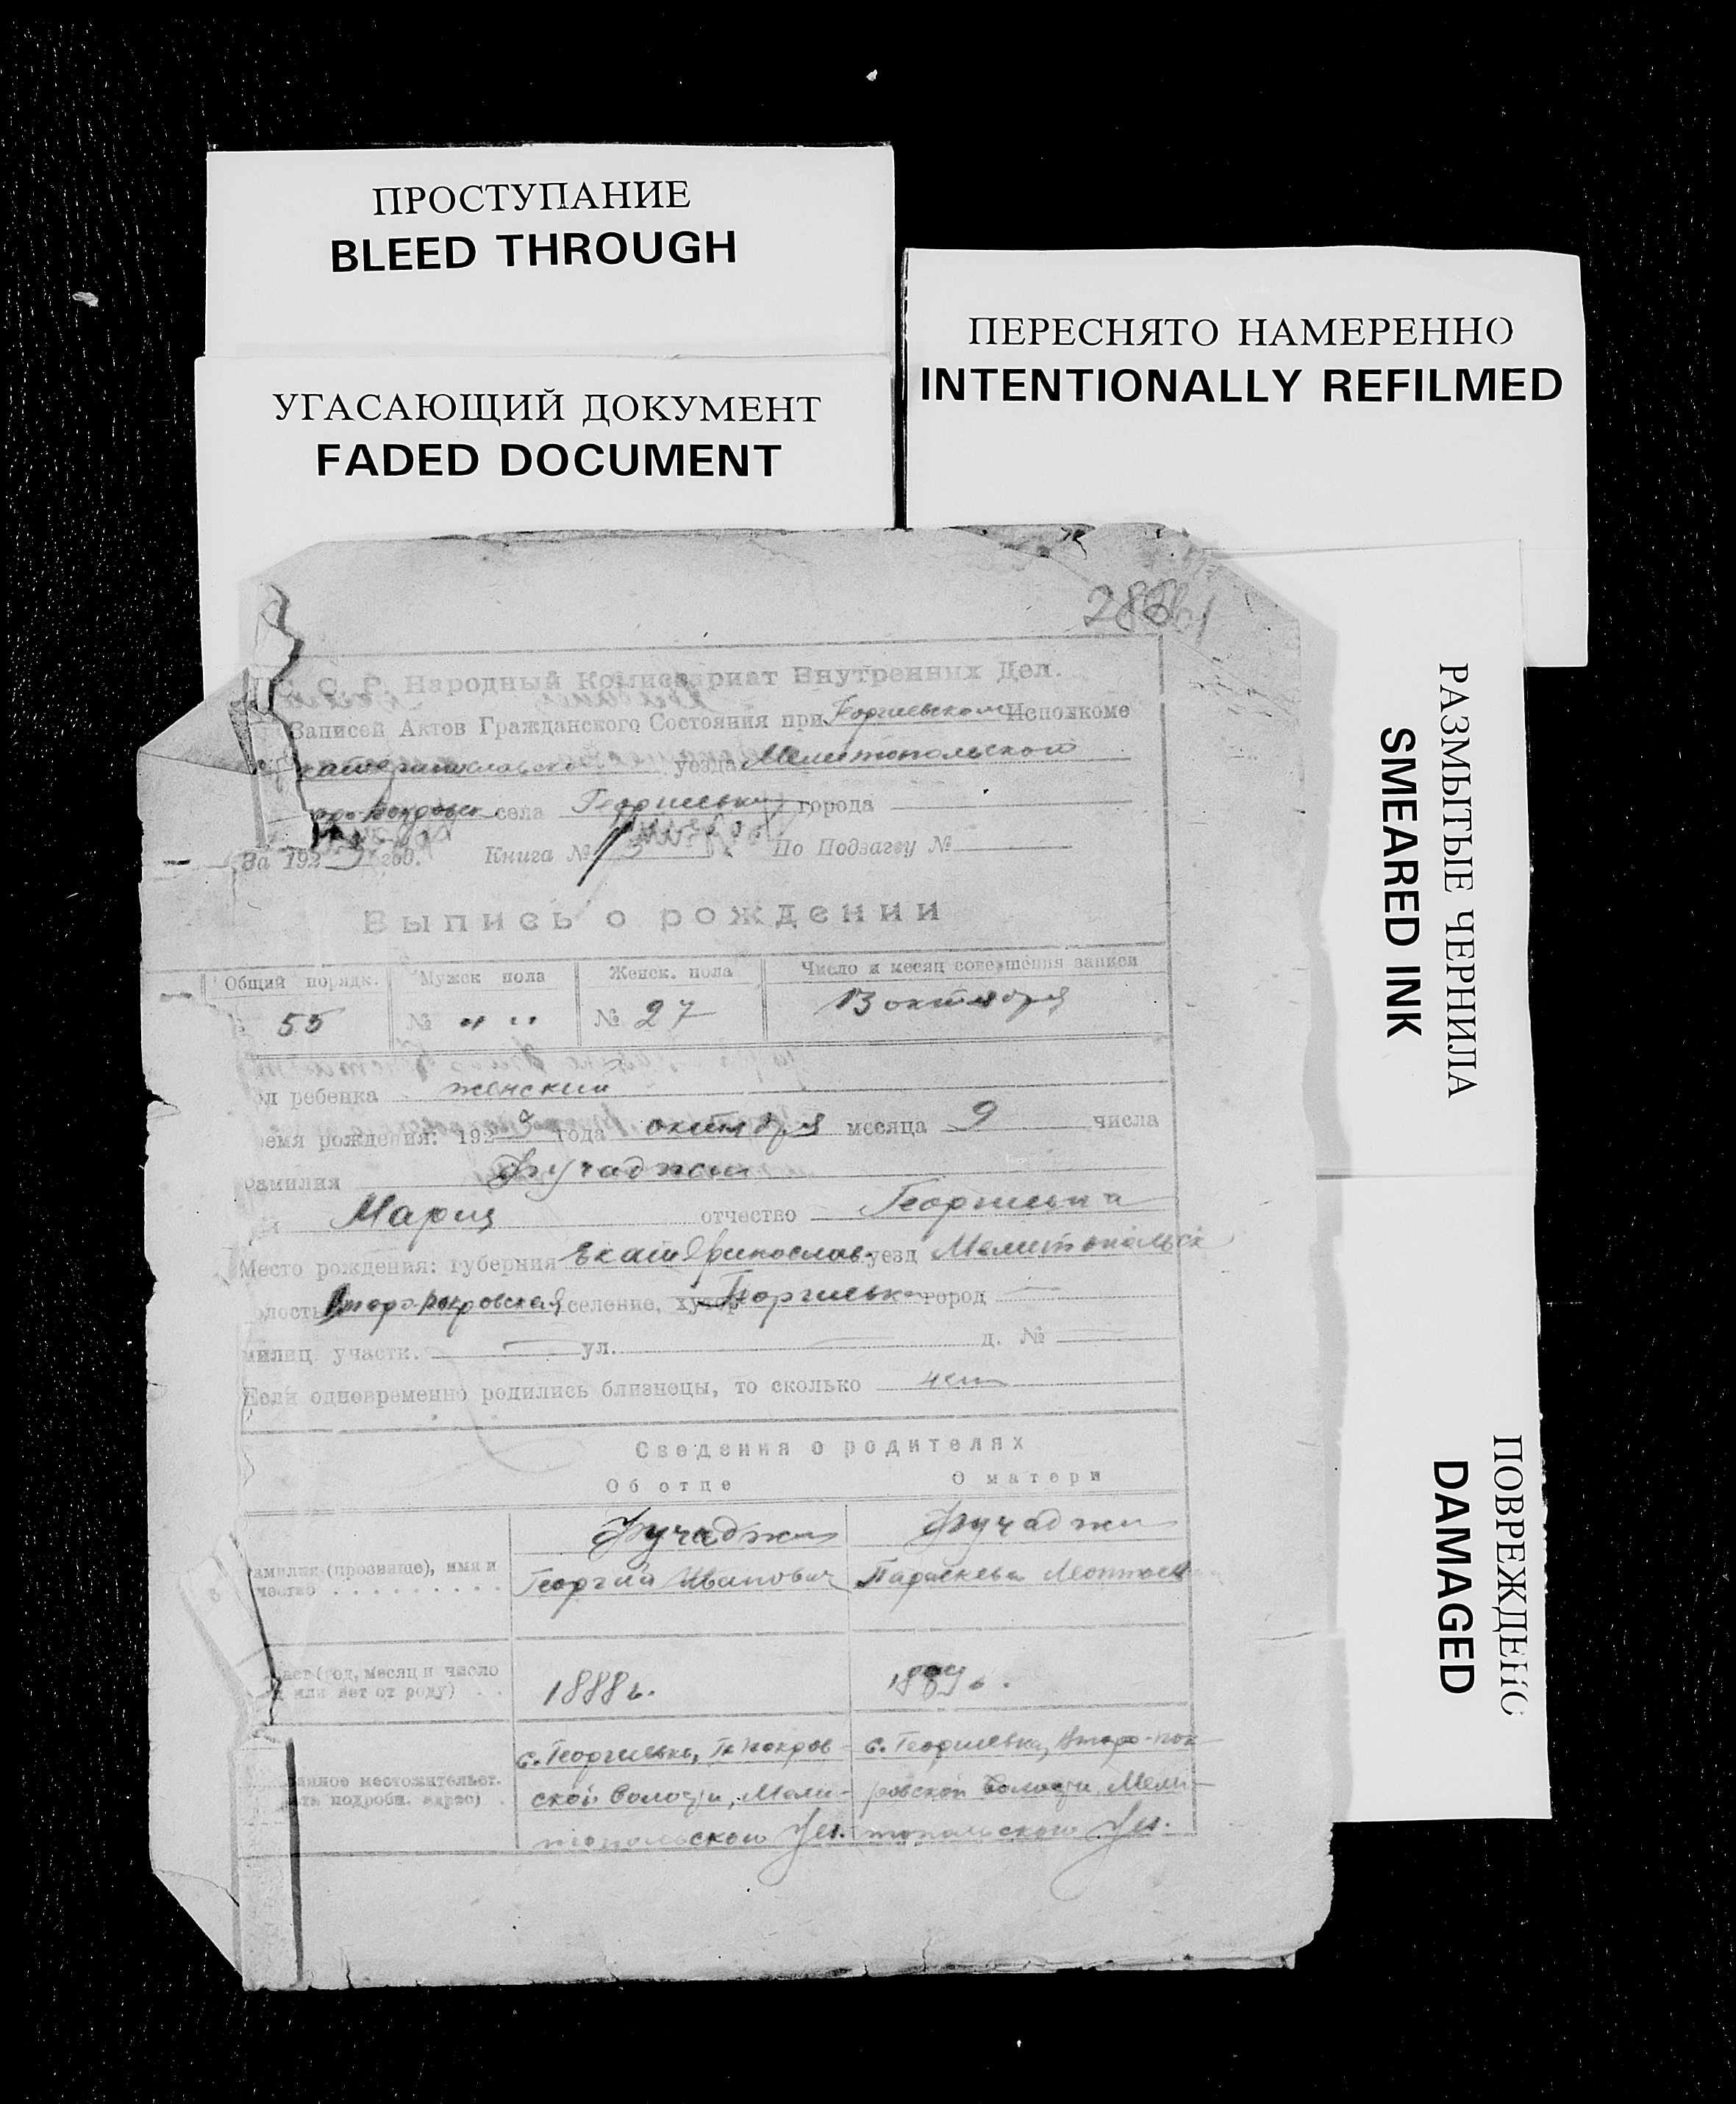 ПРОСТУПАНИЕ
BLEED THROUGH
ПЕРЕСНЯТО НАМЕРЕННО
INTENTIONALLY REFILMED
УГАСАЮЩИЙ ДОКУМЕНТ
FADED DOCUMENT
РАЗМЫТЫЕ ЧЕРНИЛА
SMEARED INK
ПОВРЕЖДЕНО
DAMAGED
С. Р. Народный Комиссариат Внутренних Дел.
Записей Актов Гражданского Состояния при Георгиевском Исполкоме
уезда Мелитопольского
села Георгиевки города
За 192 год. Книга № По Подзагсу №
Выпись о рождении
Общий порядк. Мужск пола Женск. пола Число и месяц совершения записи
55 № " " № 27 13 октября
ол ребенка женский
ремя рождения: 192 года октября месяца 9 числа
Фамилия Бучаджи
Мария отчество Георгиевна
Место рождения: губерния Екатеринослав. уезд Мелитопольск
олость Второ-Покровская селение, хутор Георгиевка город
милиц участк. ул. д. №
Если одновременно родились близнецы, то сколько нет
Сведения о родителях
Об отце О матери
Бучаджи Бучаджи
амилия (прозвище), имя и Георгий Иванович Параскева
чество
аст (год, месяц и число
или лет от роду) 1888 г.
с. Георгиевка, покров- с. Георгиевка, Второ-пок-
анное местожительст. ской волости, Мели- ровской волости, Мели-
подробн. адрес)
топольского Уез. топольского Уез.